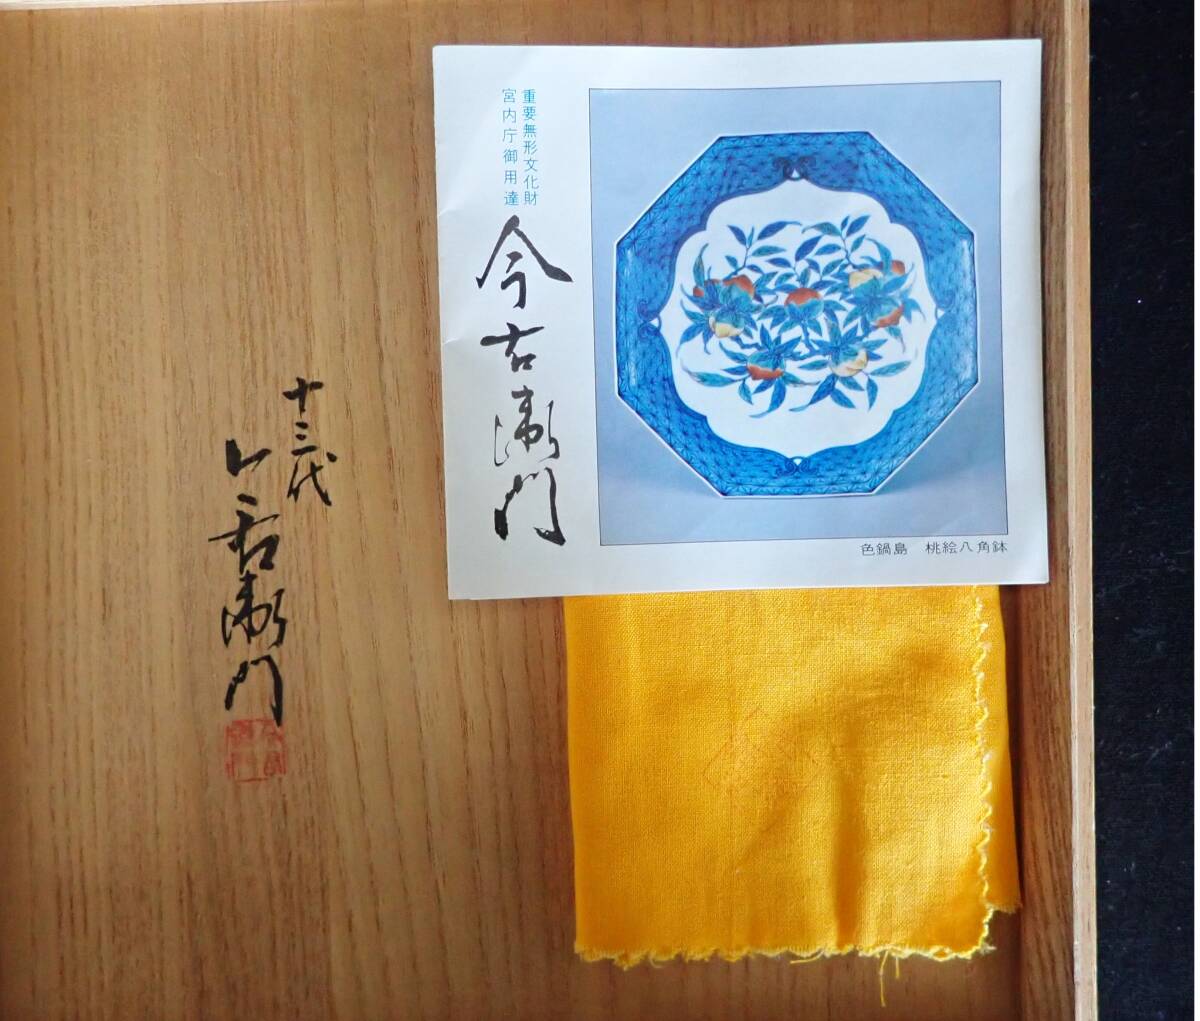 重要無形文化財
宮内庁御用達
今右衛門
色鍋島 桃絵八角鉢
十三代
今右衛門